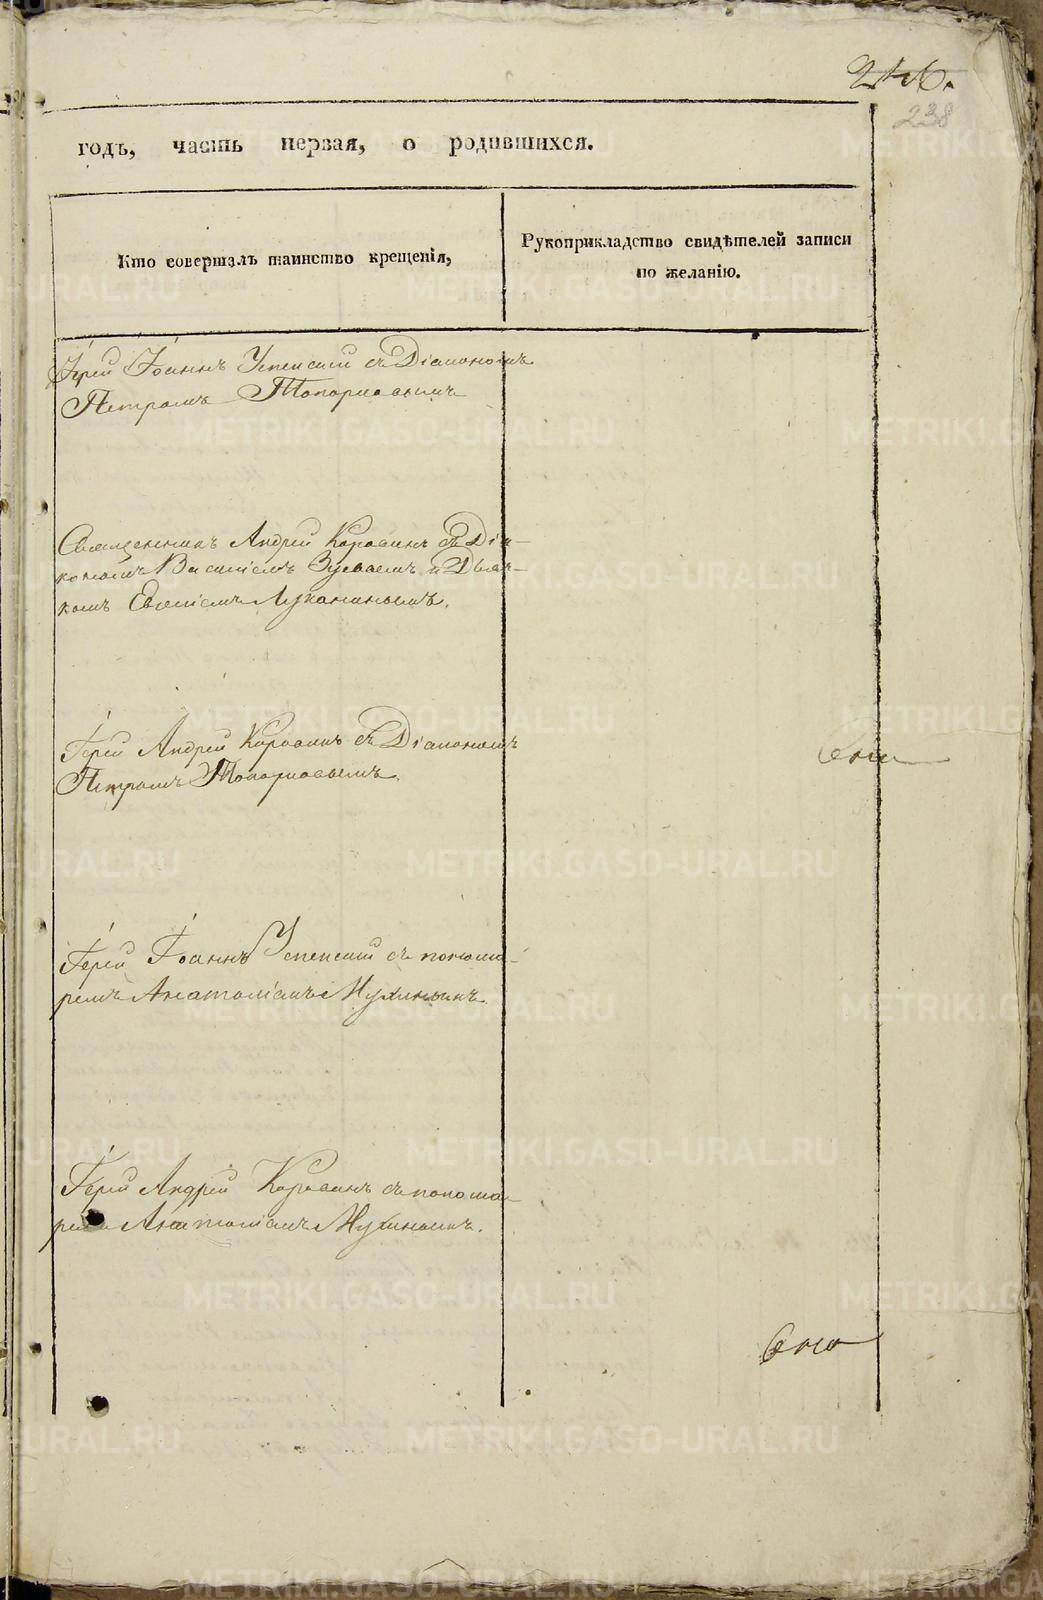 238
годъ, часть первая, о родившихся.
Кто совершалъ таинство крещенія,
Рукоприкладство свидѣтелей записи
по желанію.
Іерей Іоаннъ Успенскій съ Діакономъ
Петромъ Топорковымъ
Священникъ Андрей Коровинъ съ Діа-
кономъ Василіемъ и Дьяч-
комъ Евгеніемъ Луканинымъ.
Іерей Андрей Коровинъ съ Діакономъ
Петромъ Топорковымъ.
Іерей Іоаннъ Успенскій съ понома-
ремъ Анатоліемъ Мухинымъ.
Іерей Андрей Коровинъ съ понома-
ремъ Анатоліемъ Мухинымъ.
METRIKI.GASO-URAL.RU